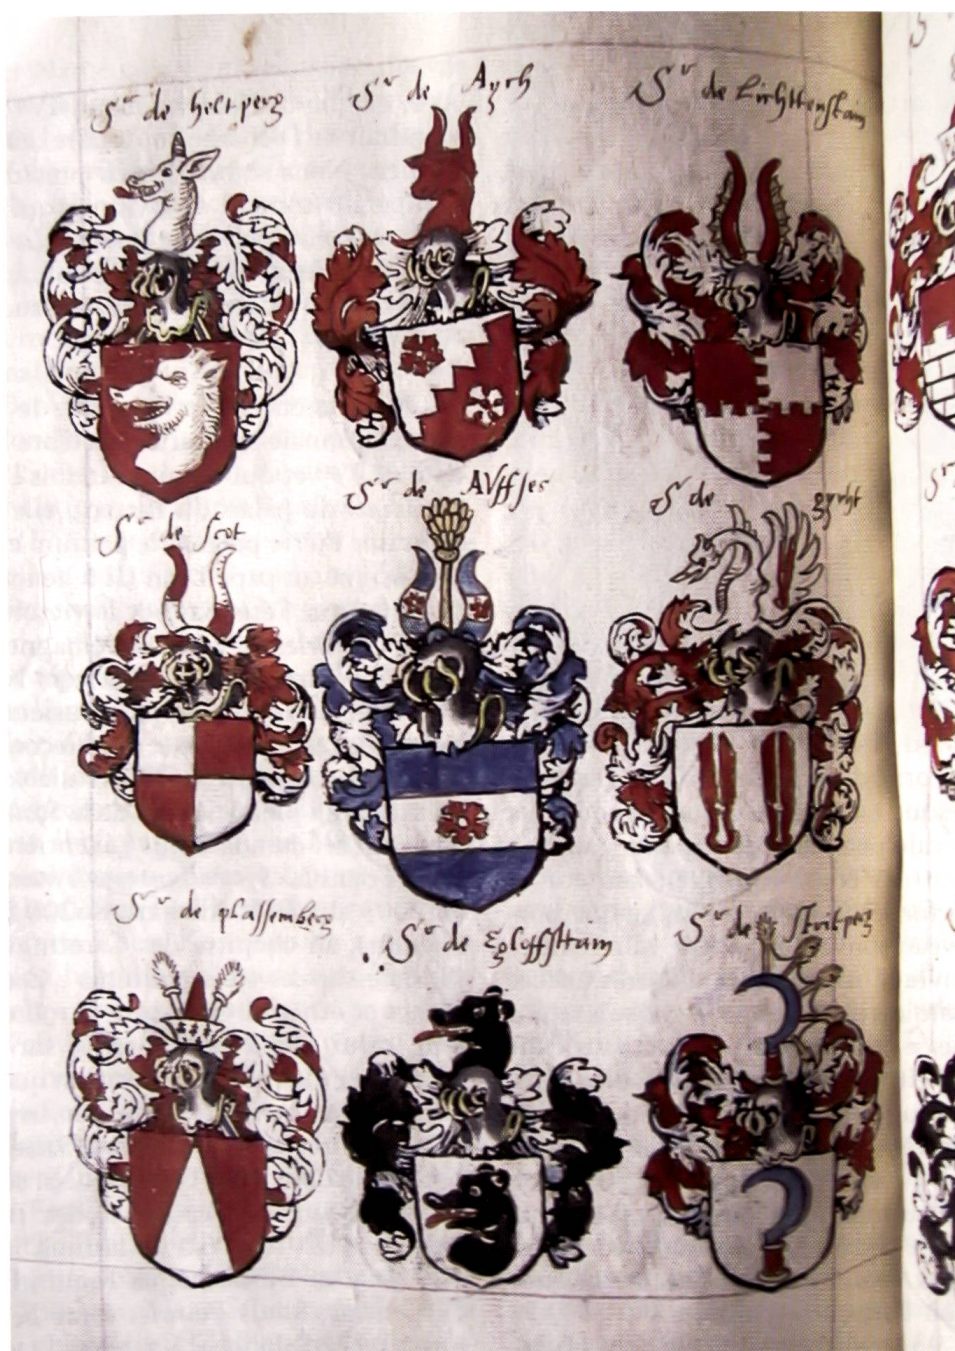 Sr de heltperg
Sr de Aych
Sr de Lichttenstain
Sr de stot
Sr de AVffses
S de
Sr de plassemberg
Sr de Egloffstam
Sr de stritperg